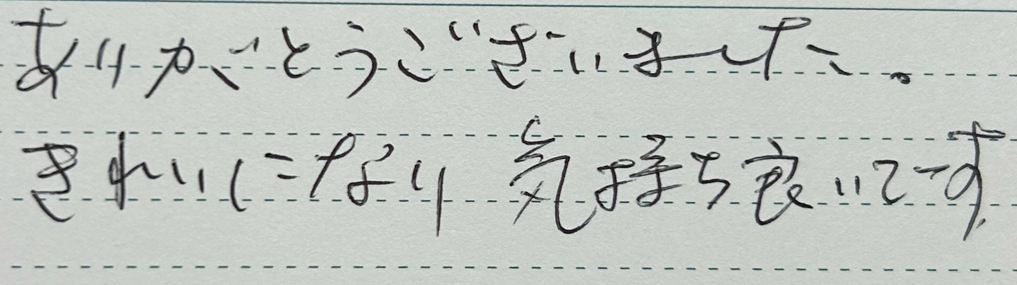 ありがとうございました。
きれいになり気持ち良いです